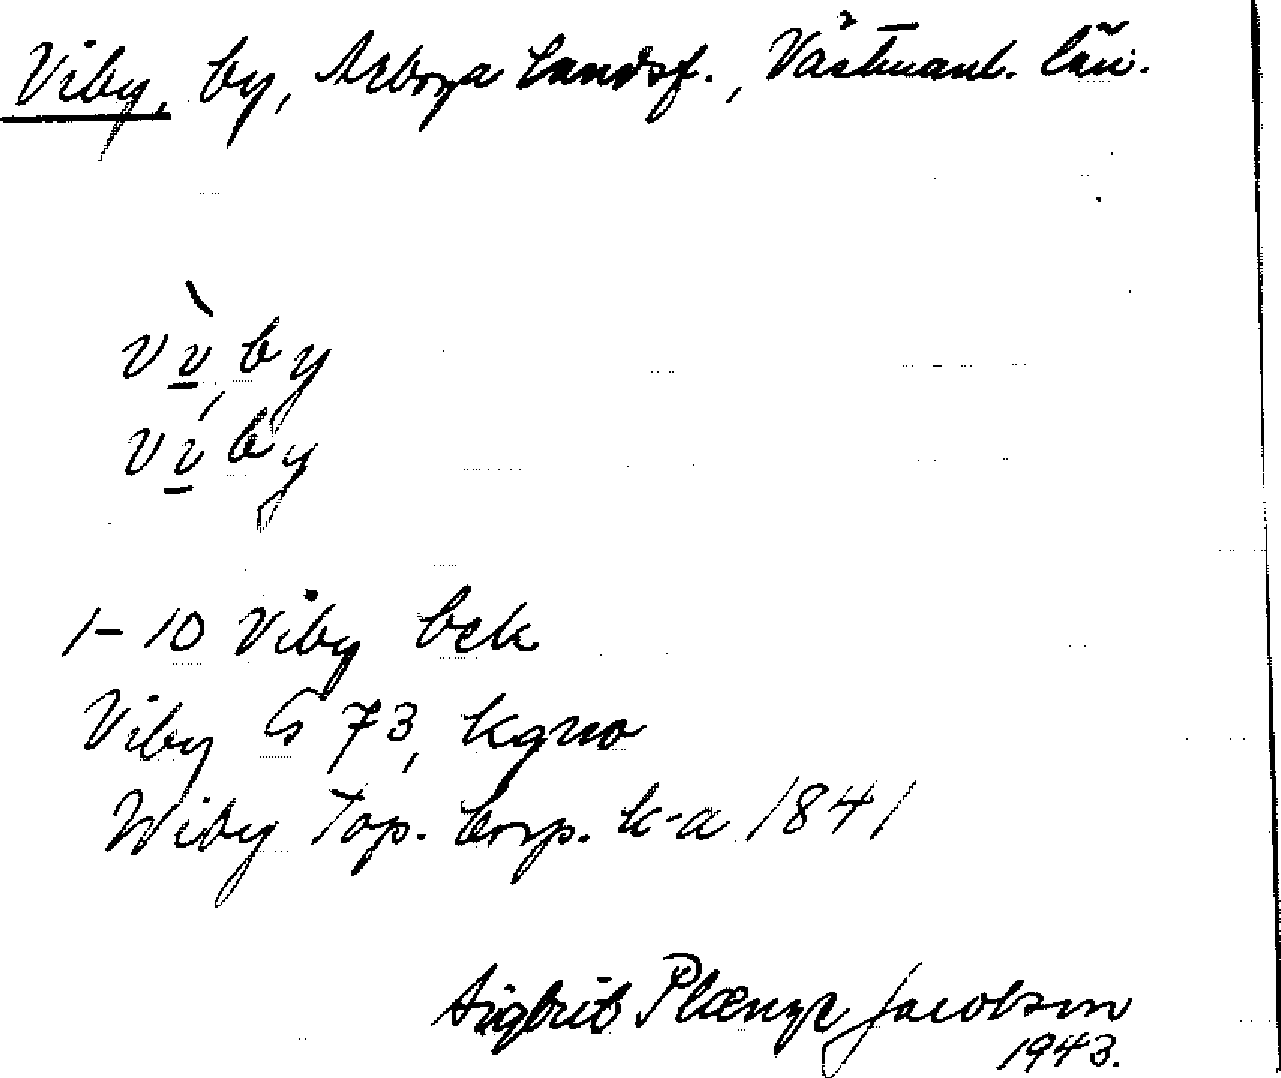 Viby, by, Arboga landsf., Västmanl. län.
vì̱by
ví̱by
1-10 Viby bek
Viby G 73, kgno
Wiby Top. Corp. k-a 1841
Sigbrit Plænge Jacobson
1943.